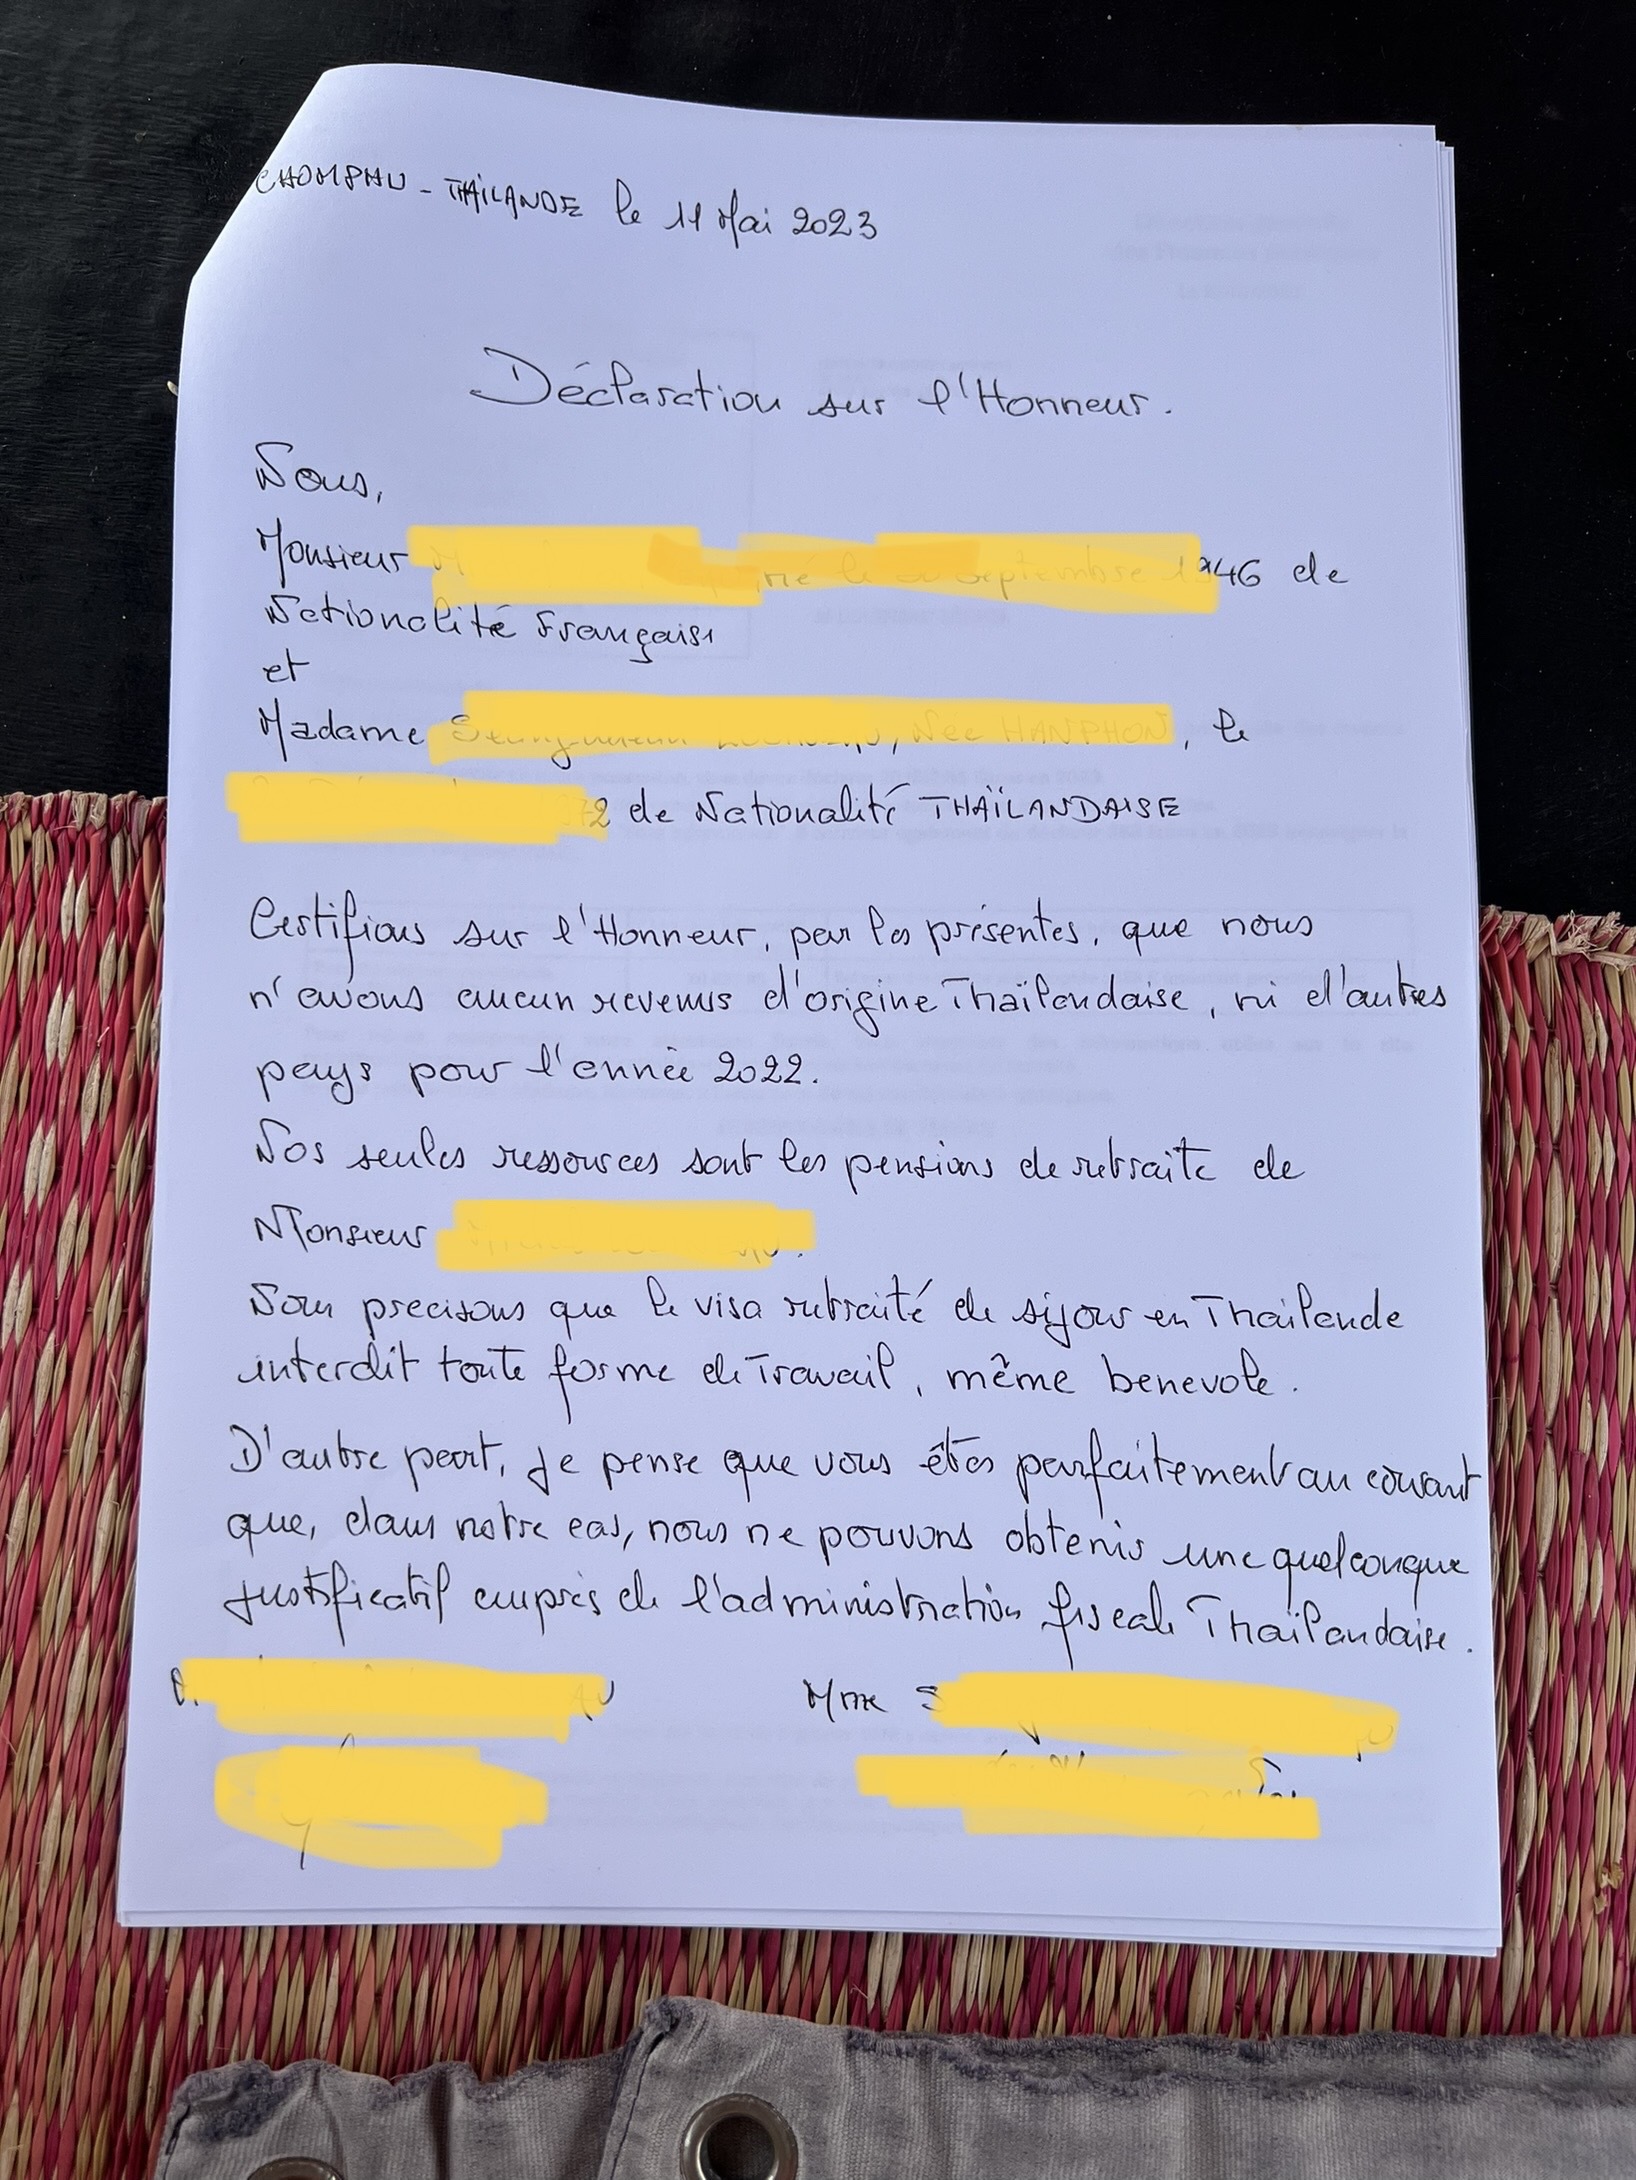 CHOMPHU - THAÏLANDE le 11 Mai 2023
Déclaration sur l'Honneur.
Nous,
Monsieur 1946 de
Nationalité Française
et
Madame , le
de Nationalité THAÏLANDAISE
Certifions sur l'Honneur, par les présentes, que nous
n'avons aucun revenus d'origine Thaïlandaise, ni d'autres
pays pour l'année 2022.
Nos seules ressources sont les pensions de retraite de
Monsieur
Nous precisons que le visa retraité de séjour en Thaïlande
interdit toute forme de Travail, même benevole.
D'autre part, je pense que vous êtes parfaitement au courant
que, dans notre cas, nous ne pouvons obtenir une quelconque
justificatif auprès de l'administration fiscale Thaïlandaise.
Mme